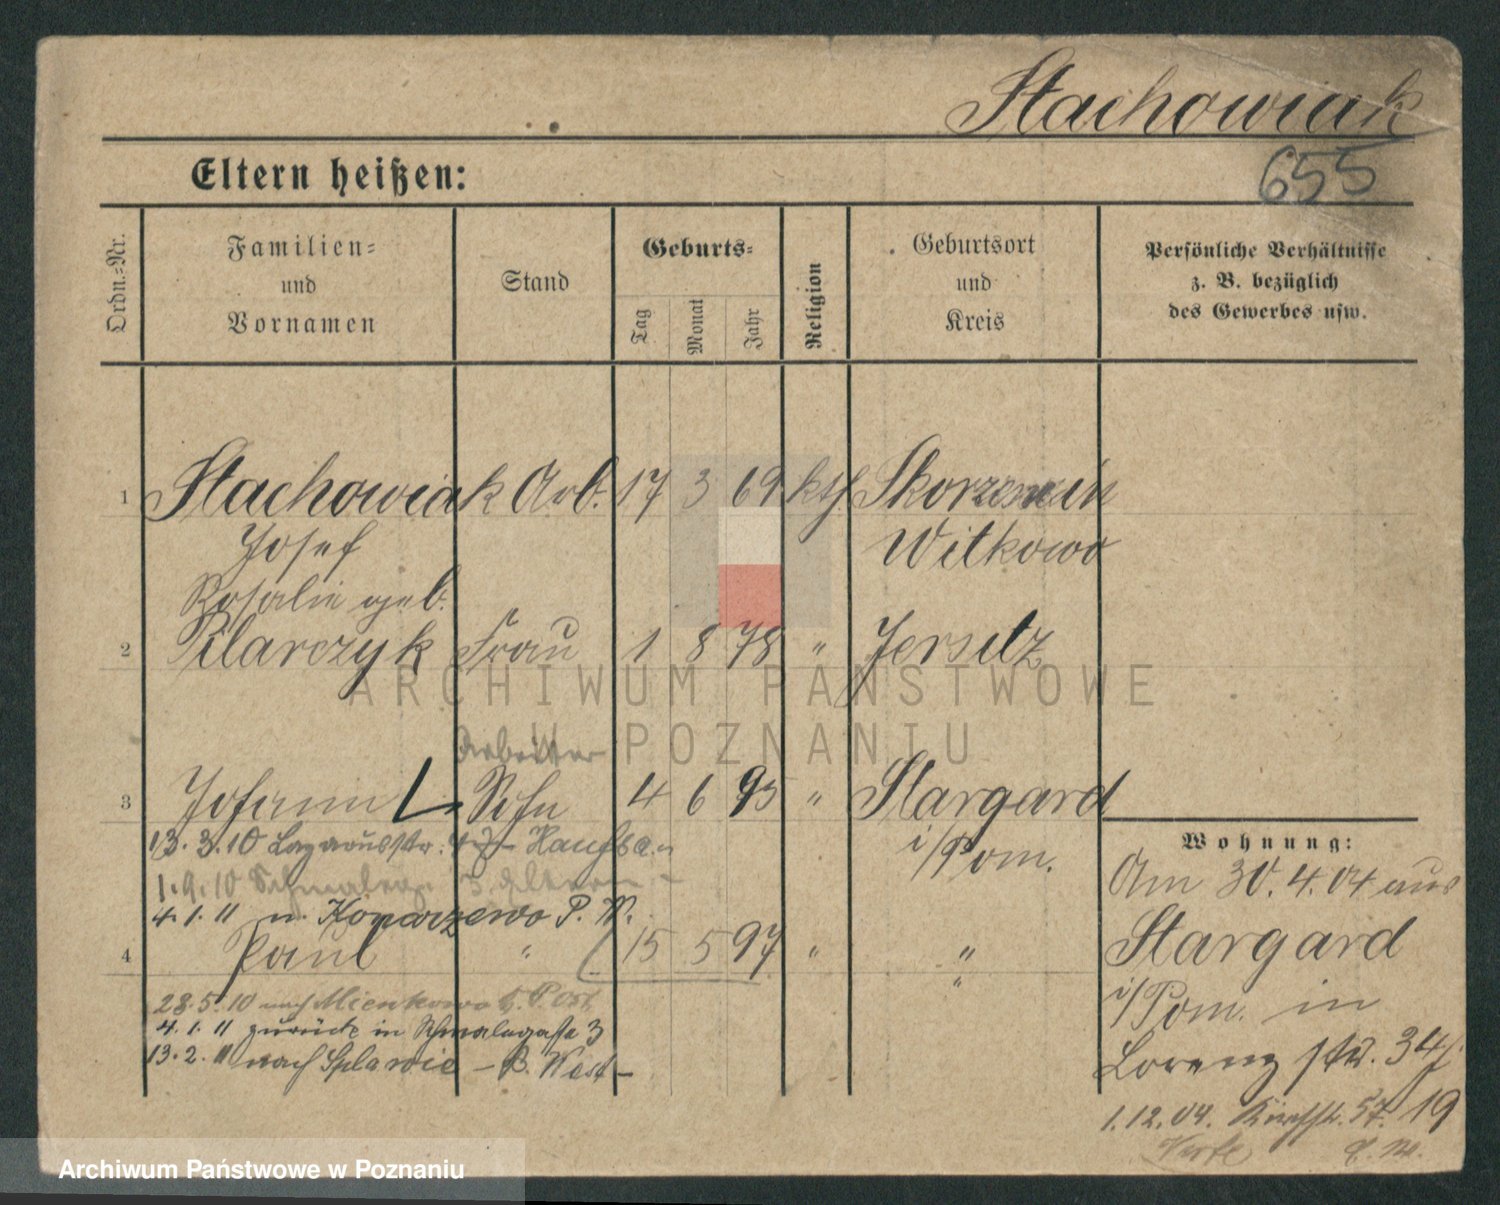 Stachowiak
655
Eltern heißen:
Ordn.-Nr.
Familien-
und
Vornamen
Stand
Geburts-
Tag
Monat
Jahr
Religion
Geburtsort
und
Kreis
Persönliche Verhältnisse
z. B. bezüglich
des Gewerbes usw.
1 Stachowiak Arb. 17 3 69 kth Skorzencin
Josef Witkowo
Rosalie geb.
2 Pilarczyk Frau 1 8 78 " Jersitz
Arbeiter
3 Johann Sohn 4 6 95 " Stargard
i/Pom.
13.3.10 Lazarusstr.
1.9.10 3. Eltern
4.1.11 n. Konarzewo P. W.
4 Paul " 15 5 97 " "
"
28.5.10 nach Mienkowo P. Ost
4.1.11 zurück in Schmalegasse 3
13.2.11 nach Splawie - P. West -
Wohnung:
Am 30.4.04 aus
Stargard
i/Pom. in
Lorenz str. 34/
1.12.04. Kirchstr. 57. 19
ARCHIWUM PAŃSTWOWE
W POZNANIU
Archiwum Państwowe w Poznaniu